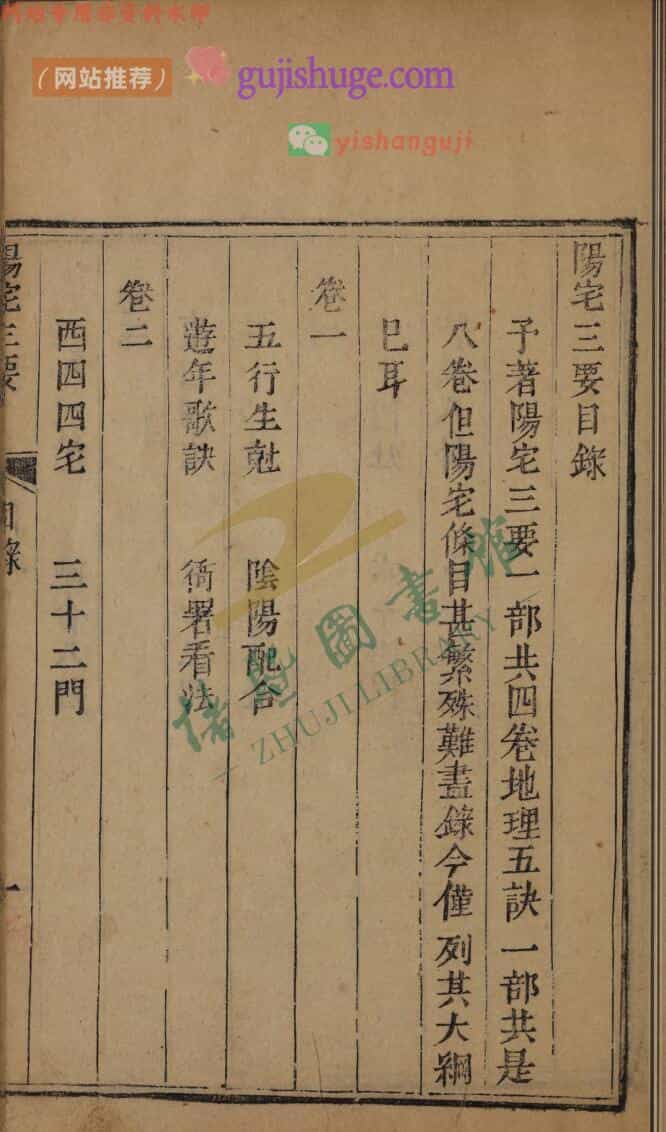 （网站推荐）
gujishuge.com
yishanguji
陽宅三要目錄
予著陽宅三要一部共四卷地理五訣一部共是
八卷但陽宅條目甚繁殊難盡錄今僅列其大綱
已耳
卷一
五行生尅　陰陽配合
遊年歌訣　衙署看法
卷二
西四四宅　三十二門
陽宅三要　目錄　一
諸暨圖書館
ZHUJI LIBRARY